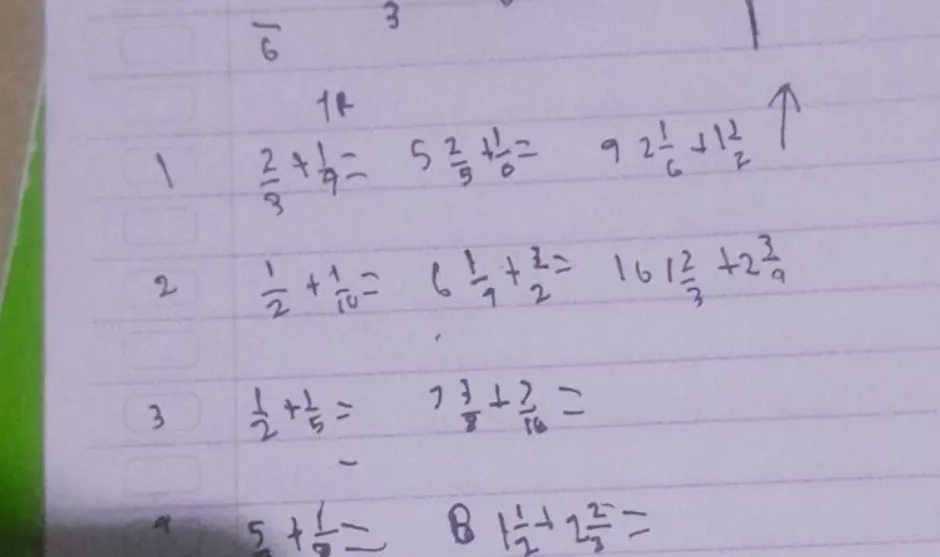 6 3
1 2/3 + 1/9 = 5 2/5 + 1/0 = 9 2 1/6 + 1 1/2
2 1/2 + 1/10 = 6 1/9 + 3/2 = 16 1 2/3 + 2 3/9
3 1/2 + 1/5 = 7 3/8 + 7/16 =
5 + 1 = 8 1 1/2 + 2 2/3 =